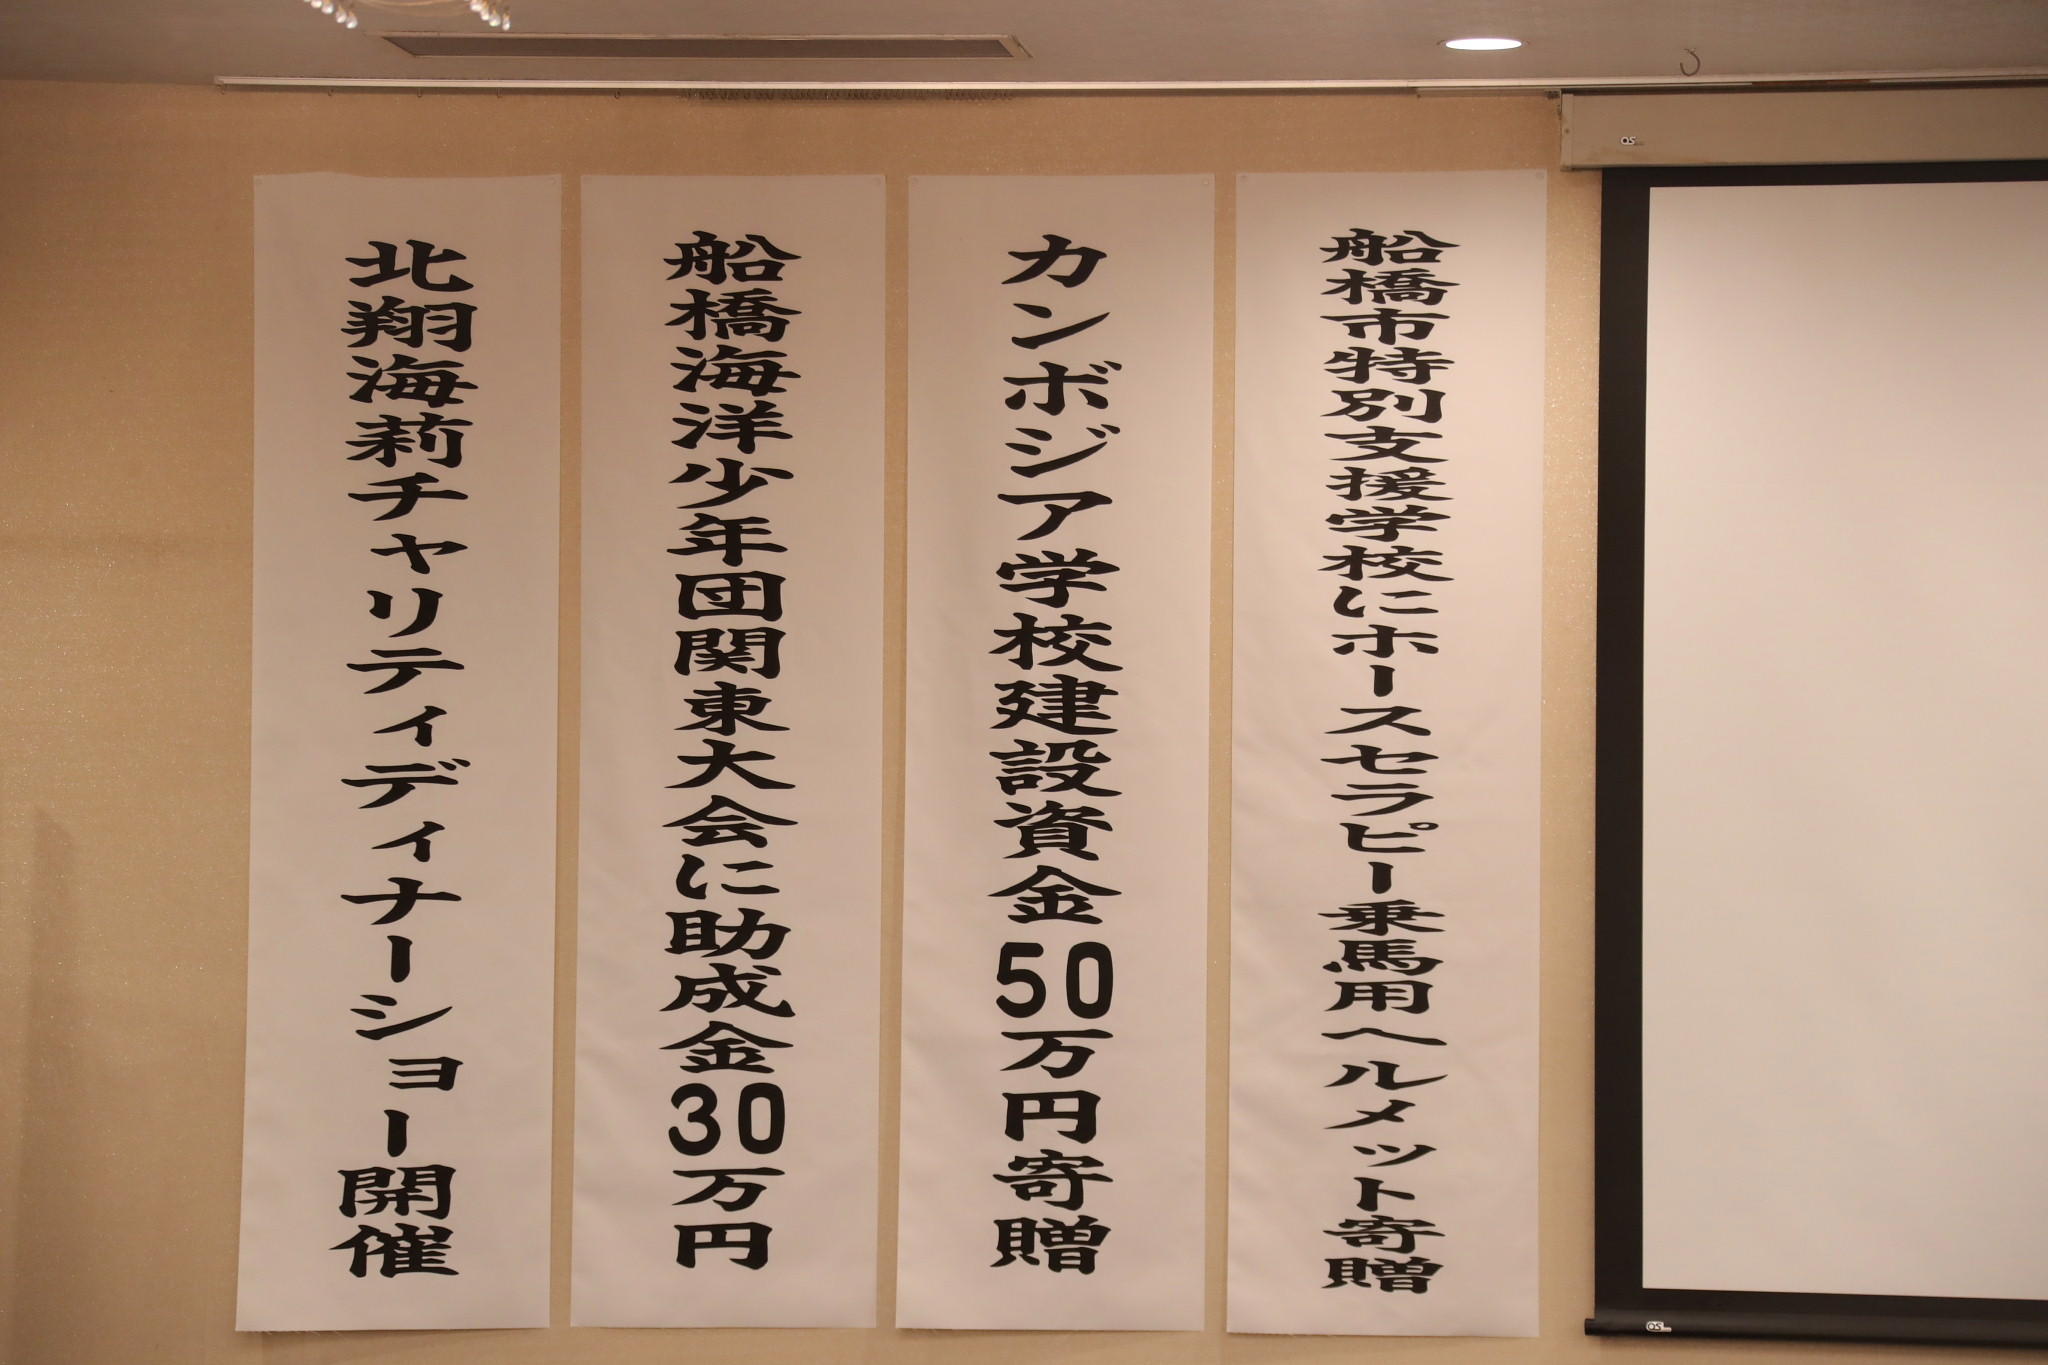 船橋市特別支援学校にホースセラピー乗馬用ヘルメット寄贈
カンボジア学校建設資金50万円寄贈
船橋海洋少年団関東大会に助成金30万円
北翔海莉チャリティディナーショー開催
OS
OS